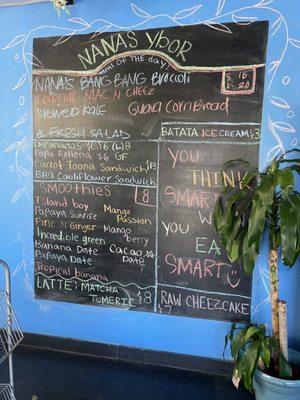 NANAS YBOR
Meal OF THE day!
NANA'S BANG BANG Broccoli
COCONUT MAC N CHEEZ
Stewed Kale Guava CornBread
$ 15
$ 20
& FRESH SALAD
Empanadas
Papa Rellena $6 GF
Carrot Toona Sandwich $13
BBQ Cauliflower Sandwich
SMOOTHIES 8
Island boy Mango Passion
Papaya Sunrise
Pine & Ginger Mango Berry
Incredible green
Banana Date Cacao Date
Papaya Date
Tropical banana
LATTE: MATCHA $8
TUMERIC
BATATA ICE CREAM $3
YOU
THINK
SMART
YOU
EAT
SMART
RAW CHEEZCAKE
$7